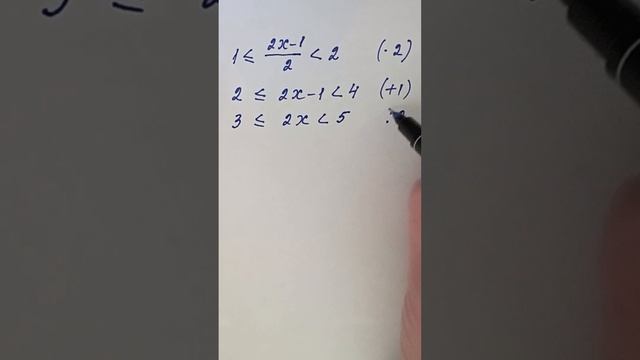 1 ≤ (2x-1)/2 < 2 (· 2)
2 ≤ 2x-1 < 4 (+1)
3 ≤ 2x < 5 :